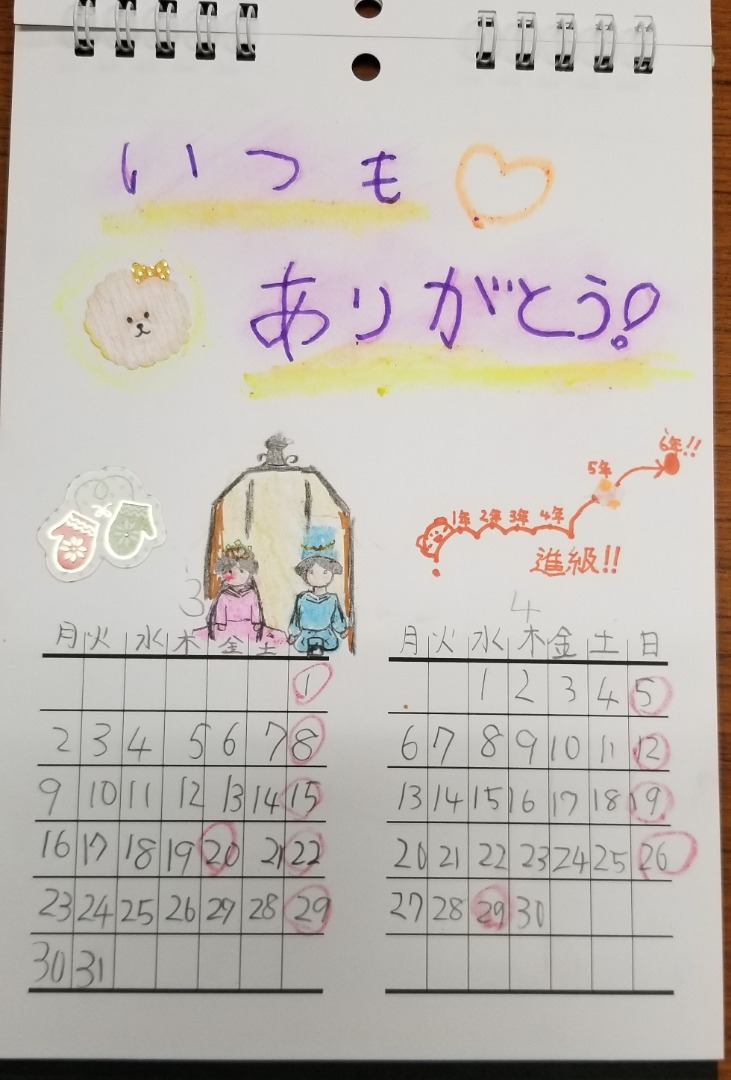 いつも
ありがとう!
6年!!
5年
1年 2年 3年 4年
進級!!
3
月 火 水 木 金 土
1
2 3 4 5 6 7 8
9 10 11 12 13 14 15
16 17 18 19 20 21 22
23 24 25 26 27 28 29
30 31
4
月 火 水 木 金 土 日
1 2 3 4 5
6 7 8 9 10 11 12
13 14 15 16 17 18 19
20 21 22 23 24 25 26
27 28 29 30